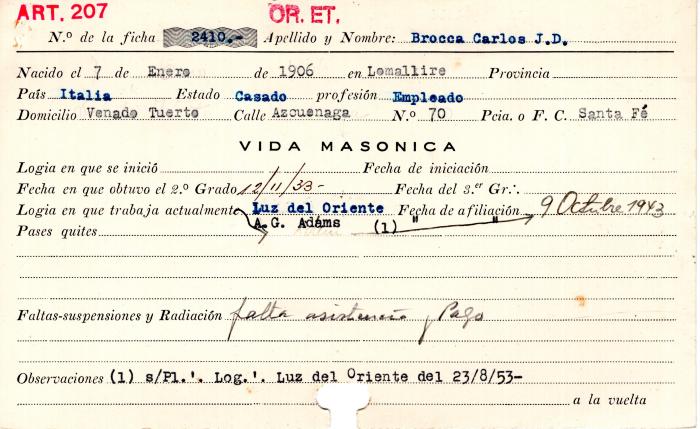 ART. 207
OR. ET.
N.º de la ficha 2410.- Apellido y Nombre: Brocca Carlos J.D.
Nacido el 7 de Enero de 1906 en Lomallire Provincia
País Italia Estado Casado profesión Empleado
Domicilio Venado Tuerto Calle Azcuenaga N.º 70 Pcia. o F. C. Santa Fé
VIDA MASONICA
Logia en que se inició Fecha de iniciación
Fecha en que obtuvo el 2.º Grado 12/11/33- Fecha del 3.er Gr∴
Logia en que trabaja actualmente Luz del Oriente Fecha de afiliación 9 Octubre 1943
A.G. Adáms (1) " "
Pases quites
Faltas-suspensiones y Radiación falta asistencia y Pago
Observaciones (1) s/Pl.'. Log.'. Luz del Oriente del 23/8/53-
a la vuelta